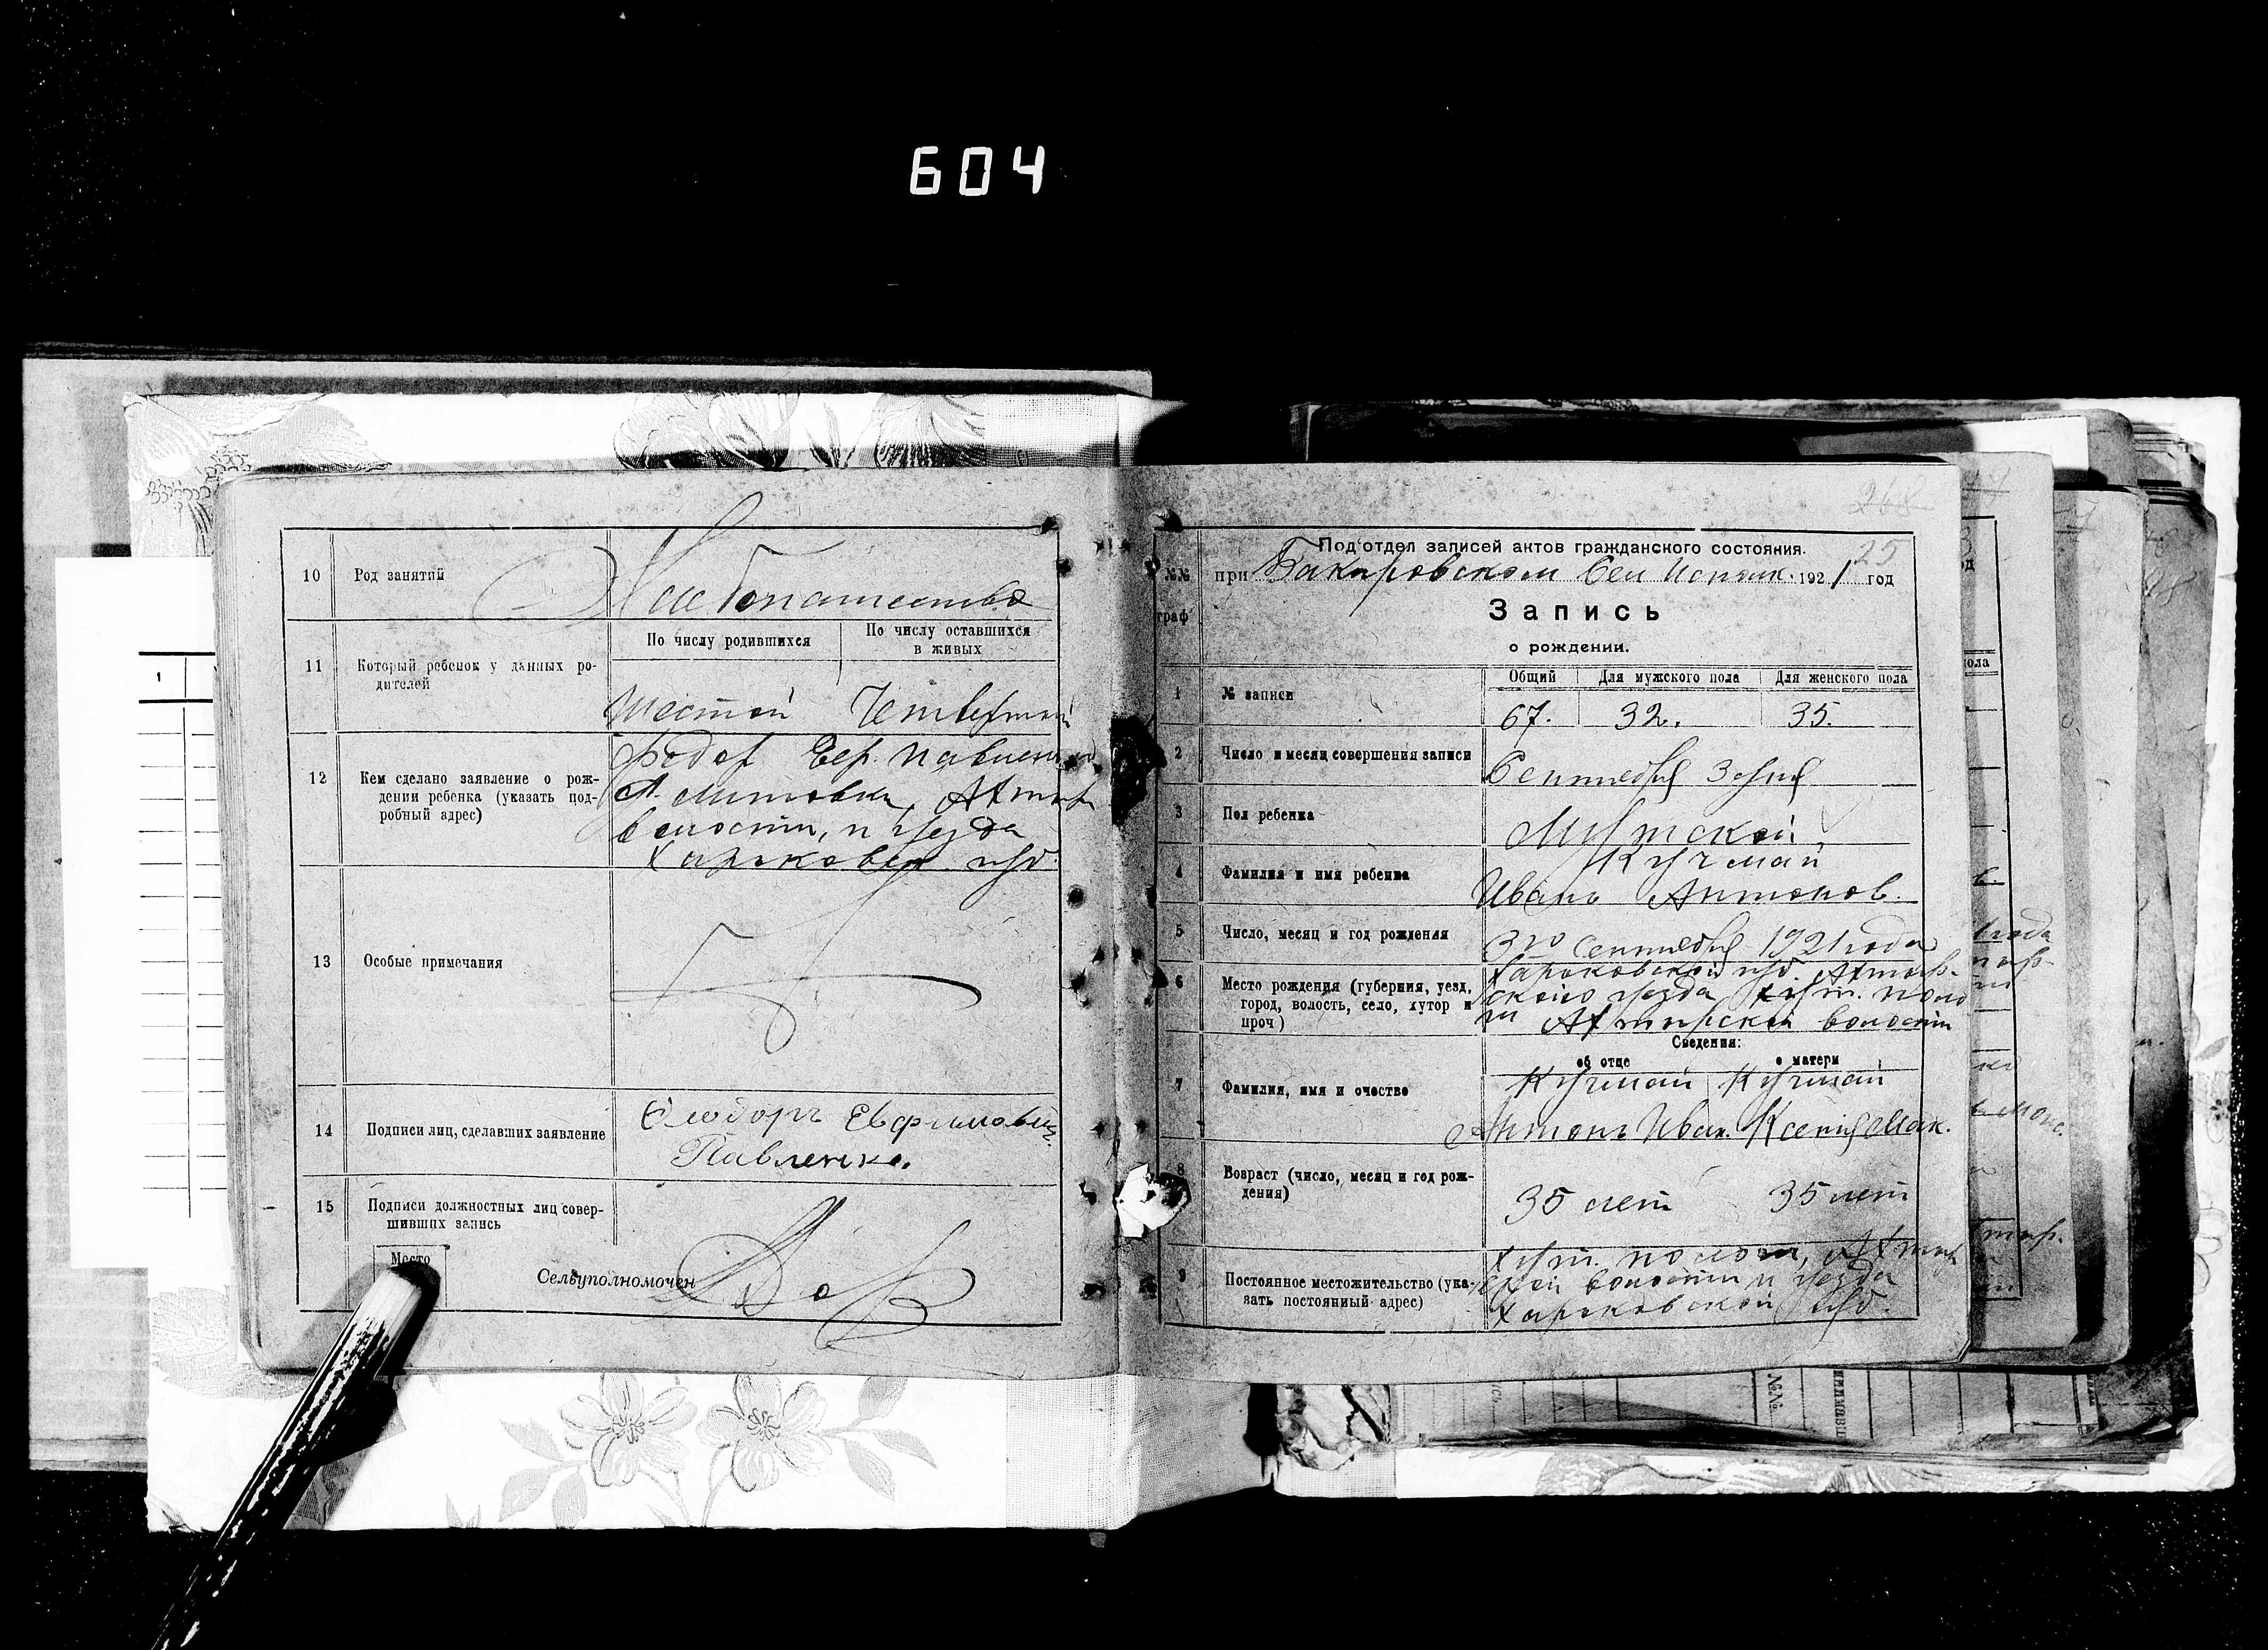 604
10 Род занятий
Хлебопашество
11 Который ребенок у данных ро-
дителей
По числу родившихся
По числу оставшихся
в живых
Шестой Четвертый
12 Кем сделано заявление о рож-
дении ребенка (указать под-
робный адрес)
Федор Евф. Павленко
Литовка, Ахтыр
волости, и уезда
Харьковск. губ.
13 Особые примечания
14 Подписи лиц, сделавших заявление
Феодоръ Евфимович
Павленко.
15 Подписи должностных лиц совер-
шивших запись
Место
Сельуполномочен
268
25
Под‘отдел записей актов гражданского состояния.
№№
граф
при Бакировском Сел Исполк. 1921 год
Запись
о рождении.
1 № записи
Общий Для мужского пола Для женского пола
67. 32. 35.
2 Число и месяц совершения записи
Сентября 3 дня
3 Пол ребенка
Мужской
4 Фамилия и имя ребенка
Кучмай
Иванъ Антонов.
5 Число, месяц и год рождения
3го Сентября 1921 года
6 Место рождения (губерния, уезд,
город, волость, село, хутор и
проч)
Харьковской губ. Ахтыр-
ского уезда хут.
Ахтырской волости
Сведения:
об отце о матери
7 Фамилия, имя и очество
Кучмай Кучмай
Антонъ Иван. Ксения Мак.
8 Возраст (число, месяц и год рож-
дения)
35 лет 35 лет
9 Постоянное местожительство (ука-
зать постоянный адрес)
хут. Ахтыр
волости и уезда
Харьковской губ.